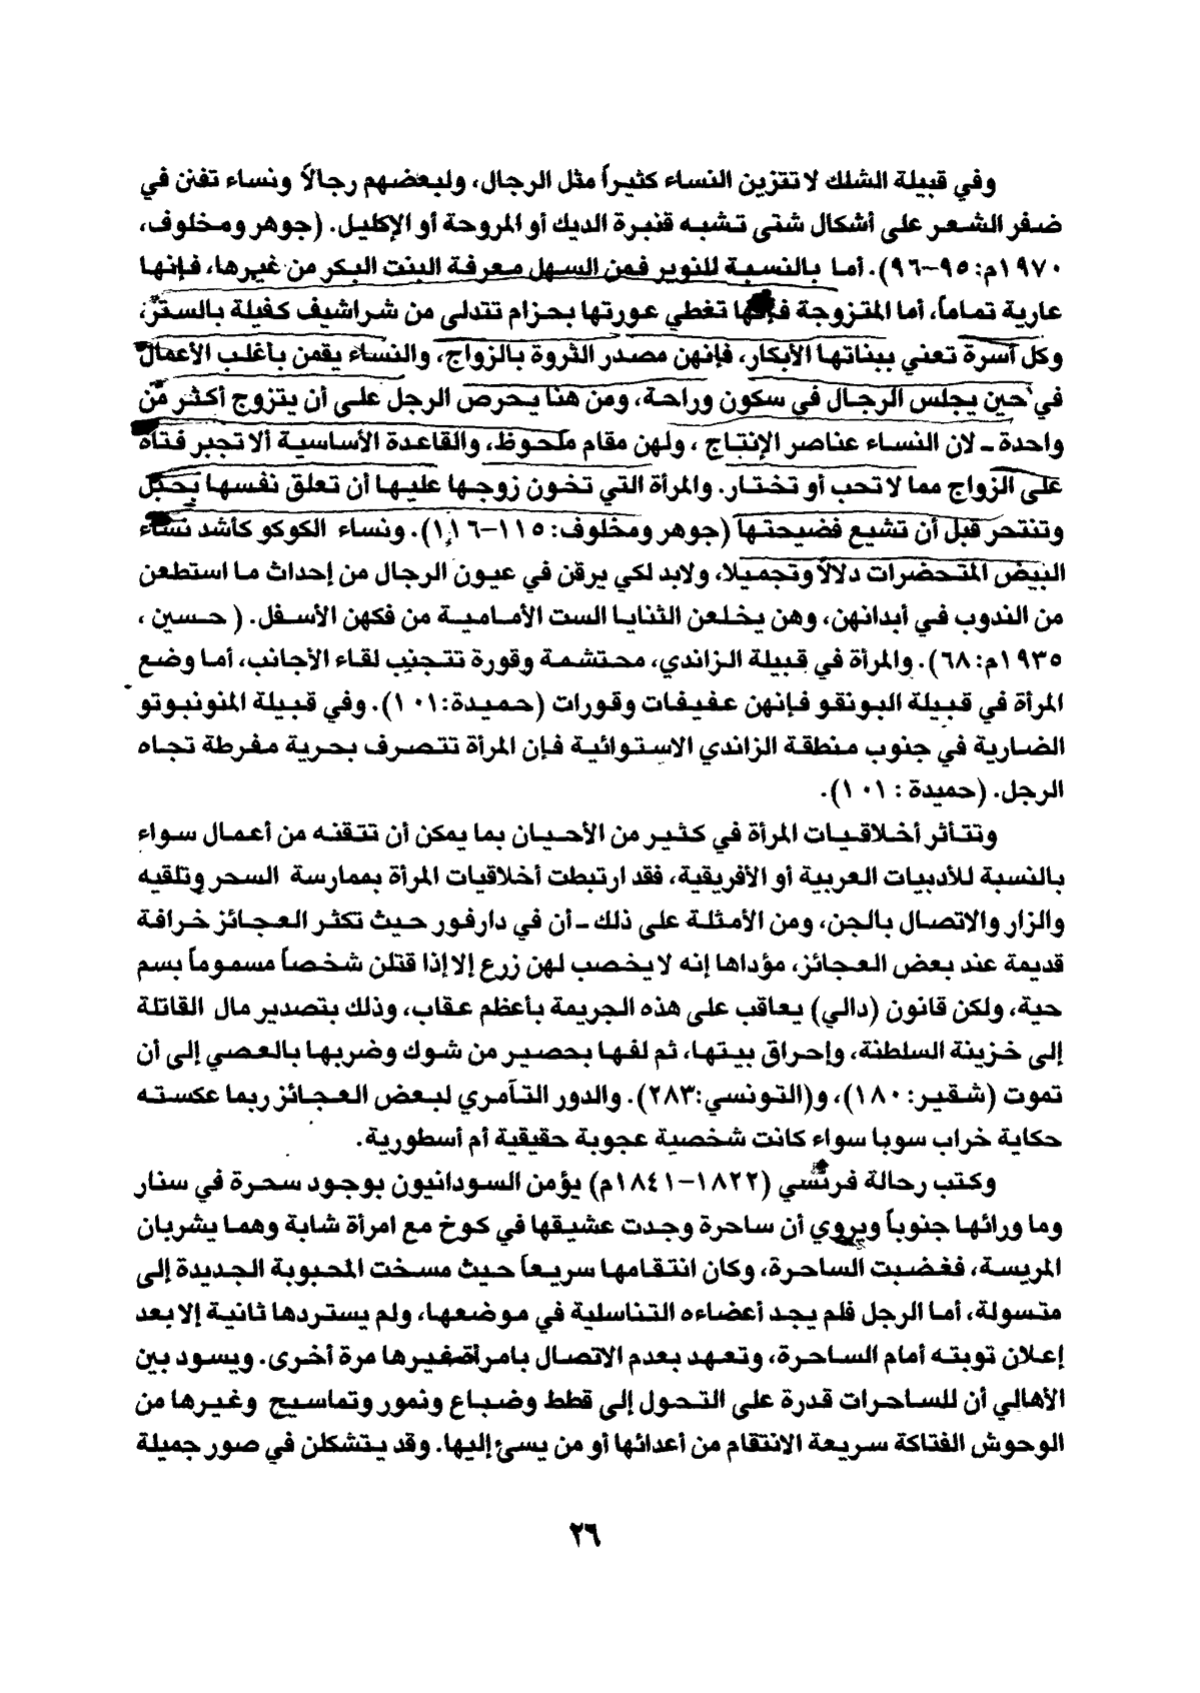 وفي قبيلة الشلك لا تتزين النساء كثيراً مثل الرجال، ولبعضهم رجالاً ونساء تفنن في
ضفر الشعر على أشكال شتى تشبه قنبرة الديك أو المروحة أو الإكليل. (جوهر ومخلوف،
١٩٧٠م: ٩٥-٩٦). أما بالنسبة للنوير فمن السهل معرفة البنت البكر من غيرها، فإنها
عارية تماماً، أما المتزوجة فإنها تغطي عورتها بحزام تتدلى من شراشيف كفيلة بالستر،
وكل أسرة تعني ببناتها الأبكار، فإنهن مصدر الثروة بالزواج، والنساء يقمن بأغلب الأعمال
في حين يجلس الرجال في سكون وراحة، ومن هنا يحرص الرجل على أن يتزوج أكثر من
واحدة - لان النساء عناصر الإنتاج ، ولهن مقام ملحوظ، والقاعدة الأساسية ألا تجبر فتاة
على الزواج مما لا تحب أو تختار. والمرأة التي تخون زوجها عليها أن تعلق نفسها بحبل
وتنتحر قبل أن تشيع فضيحتها (جوهر ومخلوف: ١١٥-١١٦). ونساء الكوكو كأشد نساء
البيض المتحضرات دلالاً وتجميلا، ولابد لكي يرقن في عيون الرجال من إحداث ما استطعن
من الندوب في أبدانهن، وهن يخلعن الثنايا الست الأمامية من فكهن الأسفل. ( حسين ،
١٩٣٥م:٦٨). والمرأة في قبيلة الزاندي، محتشمة وقورة تتجنب لقاء الأجانب، أما وضع
المرأة في قبيلة البونقو فإنهن عفيفات وقورات (حميدة:١٠١). وفي قبيلة المنونبوتو
الضارية في جنوب منطقة الزاندي الاستوائية فإن المرأة تتصرف بحرية مفرطة تجاه
الرجل. (حميدة : ١٠١).
وتتأثر أخلاقيات المرأة في كثير من الأحيان بما يمكن أن تتقنه من أعمال سواء
بالنسبة للأدبيات العربية أو الأفريقية، فقد ارتبطت أخلاقيات المرأة بممارسة السحر وتلقيه
والزار والاتصال بالجن، ومن الأمثلة على ذلك - أن في دارفور حيث تكثر العجائز خرافة
قديمة عند بعض العجائز، مؤداها إنه لا يخصب لهن زرع إلا إذا قتلن شخصاً مسموماً بسم
حية، ولكن قانون (دالي) يعاقب على هذه الجريمة بأعظم عقاب، وذلك بتصدير مال القاتلة
إلى خزينة السلطنة، وإحراق بيتها، ثم لفها بحصير من شوك وضربها بالعصي إلى أن
تموت (شقير: ١٨٠)، و(التونسي:٢٨٣). والدور التآمري لبعض العجائز ربما عكسته
حكاية خراب سوبا سواء كانت شخصية عجوبة حقيقية أم أسطورية.
وكتب رحالة فرنسي (١٨٢٢-١٨٤١م) يؤمن السودانيون بوجود سحرة في سنار
وما ورائها جنوباً ويروي أن ساحرة وجدت عشيقها في كوخ مع امرأة شابة وهما يشربان
المريسة، فغضبت الساحرة، وكان انتقامها سريعاً حيث مسخت المحبوبة الجديدة إلى
متسولة، أما الرجل فلم يجد أعضاءه التناسلية في موضعها، ولم يستردها ثانية إلا بعد
إعلان توبته أمام الساحرة، وتعهد بعدم الاتصال بامرأة غيرها مرة أخرى. ويسود بين
الأهالي أن للساحرات قدرة على التحول إلى قطط وضباع ونمور وتماسيح وغيرها من
الوحوش الفتاكة سريعة الانتقام من أعدائها أو من يسئ إليها. وقد يتشكلن في صور جميلة
٢٦